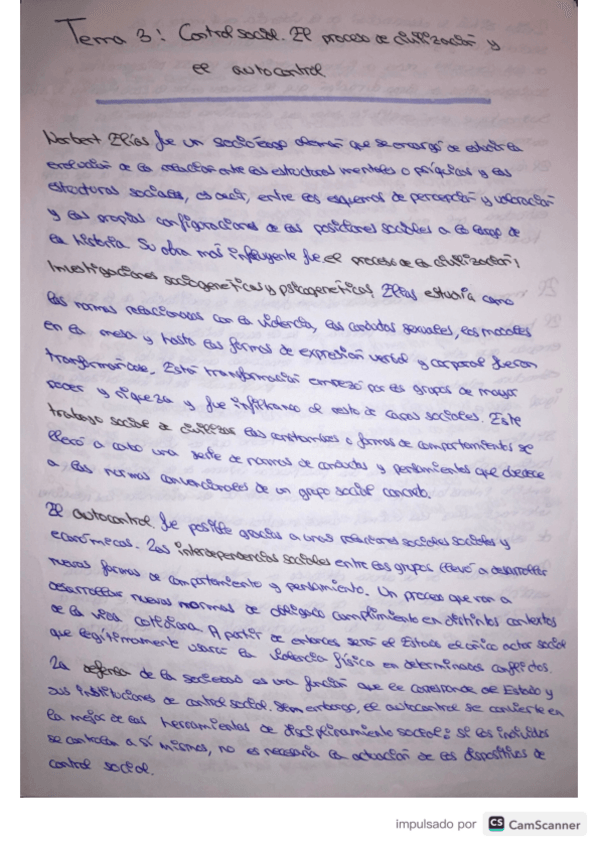 Tema 3: Control social. El proceso de civilización y
el autocontrol
Norbert Elías fue un sociólogo alemán que se encargó de estudiar la
evolución de la relación entre las estructuras mentales o psíquicas y las
estructuras sociales, es decir, entre los esquemas de percepción y valoración
y las propias configuraciones de las posiciones sociales a lo largo de
la historia. Su obra más influyente fue el proceso de la civilización;
Investigaciones sociogenéticas y psicogenéticas. Elías estudia como
las normas relacionadas con la violencia, las conductas sexuales, los modales
en la mesa y hasta las formas de expresión verbal y corporal fueron
transformándose. Esta transformación empezó por los grupos de mayor
poder y riqueza y fue infiltrando al resto de capas sociales. Este
trabajo social de civilizar las costumbres o formas de comportamientos se
llevó a cabo una serie de normas de conductas y pensamientos que obedece
a las normas convencionales de un grupo social concreto.
El autocontrol fue posible gracias a unas relaciones sociales sociales y
económicas. Las interdependencias sociales entre los grupos llevó a desarrollar
nuevas formas de comportamiento y pensamiento. Un proceso que van a
desarrollar nuevas normas de obligado cumplimiento en distintos contextos
de la vida cotidiana. A partir de entonces será el Estado el único actor social
que legítimamente usará la violencia física en determinados conflictos.
La defensa de la sociedad es una función que le corresponde al Estado y
sus instituciones de control social. Sem embargo, el autocontrol se convierte en
la mejor de las herramientas de disciplinamiento social: si los individuos
se controlan a sí mismos, no es necesaria la actuación de los dispositivos de
control social.
impulsado por CS CamScanner